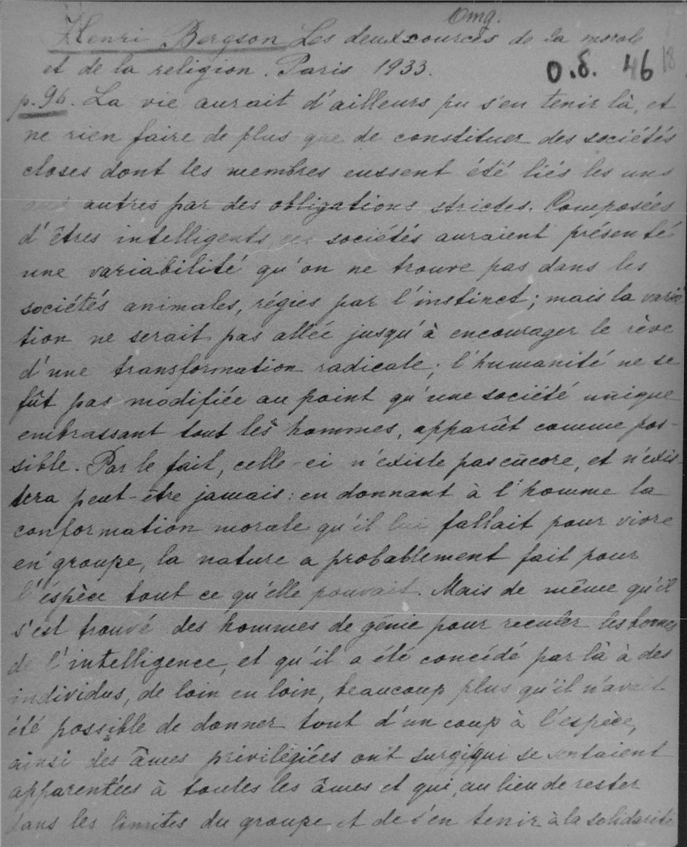 Omg.
Henri Bergson Les deux sources de la morale
et de la religion. Paris 1933.
O.б. 46
18
p. 96. La vie aurait d'ailleurs pu s'en tenir là, et
ne rien faire de plus que de constituer des sociétés
closes dont les membres eussent été liés les uns
aux autres par des obligations strictes. Composées
d'êtres intelligents ces sociétés auraient présenté
une variabilité qu'on ne trouve pas dans les
sociétés animales, régies par l'instinct; mais la varia
tion ne serait pas allée jusqu'à encourager le rêve
d'une transformation radicale; l'humanité ne se
fût pas modifiée au point qu'une société unique
embrassant tout les hommes, apparût comme pos-
sible. Par le fait, celle-ci n'existe pas encore, et n'exis
tera peut-être jamais: en donnant à l'homme la
conformation morale qu'il lui fallait pour vivre
en groupe, la nature a probablement fait pour
l'éspèce tout ce qu'elle pouvait. Mais de même qu'il
s'est trouvé des hommes de génie pour reculer les bornes
de l'intelligence, et qu'il a été concédé par là à des
individus, de loin en loin, beaucoup plus qu'il n'avait
été possible de donner tout d'un coup à l'espèce,
ainsi des âmes privilégiées ont surgi qui se sentaient
apparentées à toutes les âmes et qui, au lieu de rester
dans les limites du groupe et de s'en tenir à la solidarité